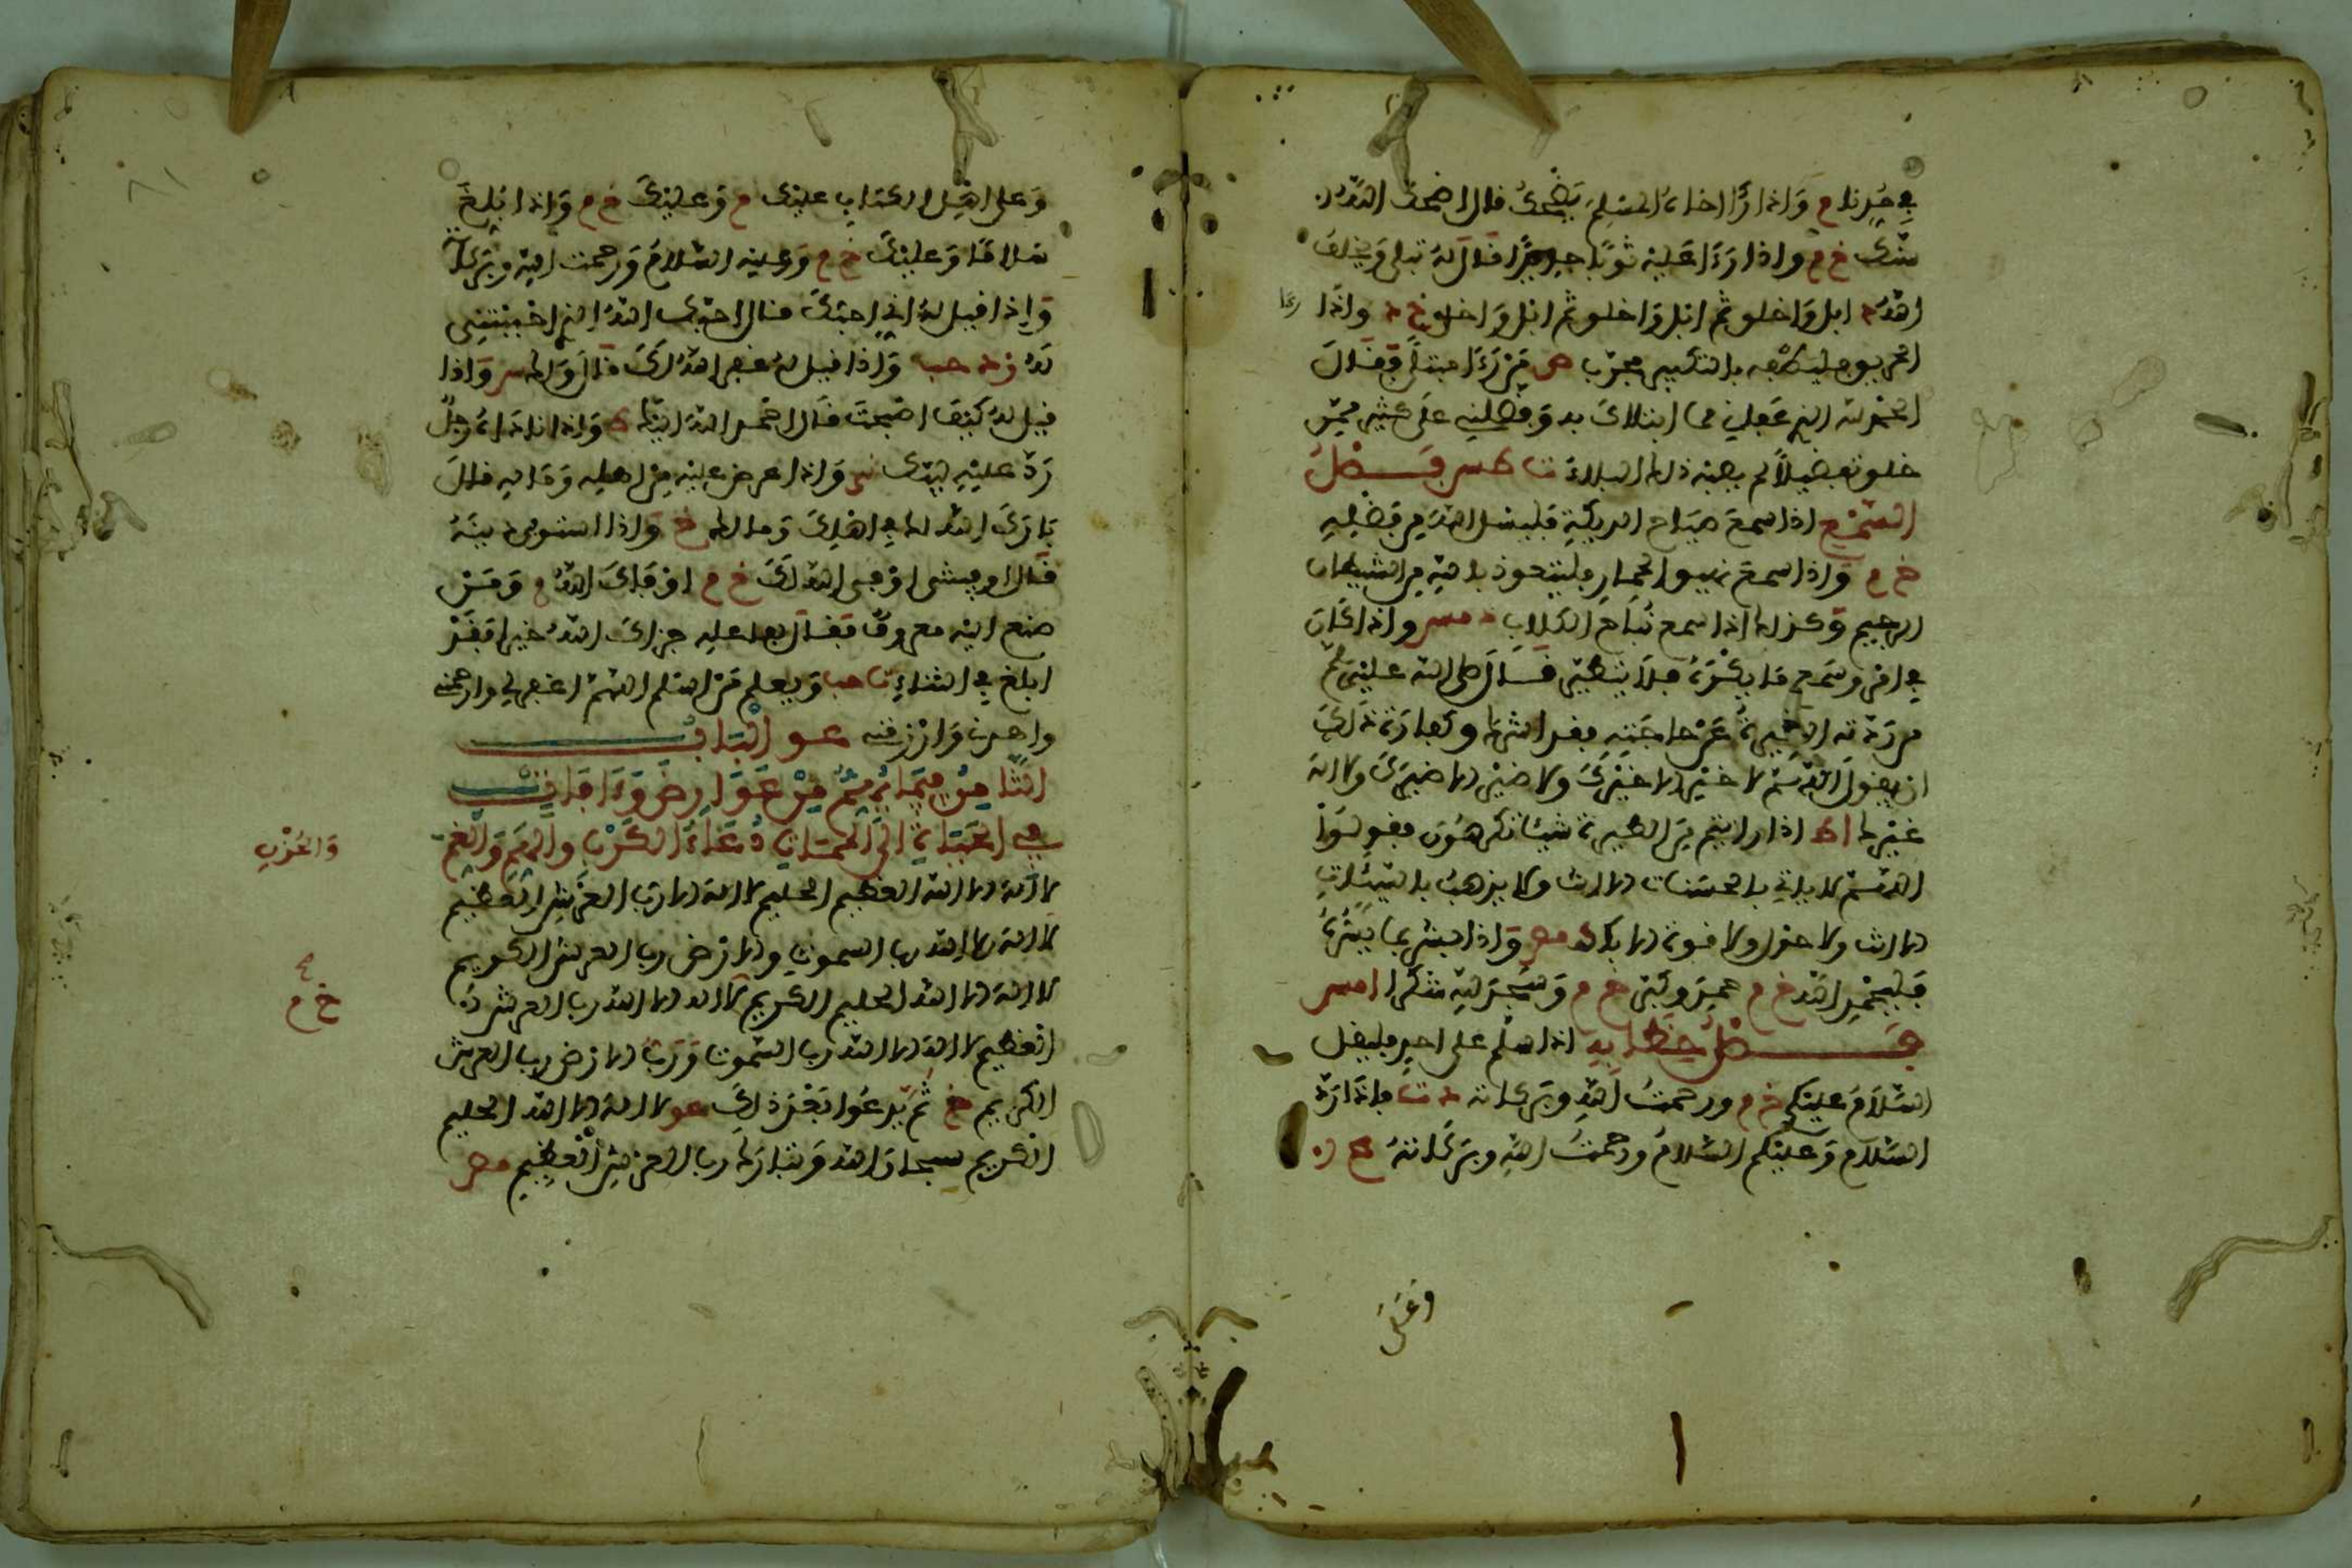 في مدنا م وَاذا رَأا اخاهُ المسْلِمَ يَضْحَكُ قال اضحَكَ اللّهُ
سنَّكَ خ م واذا رَءَا عَليْه ثوبًا جديدًا قالَ لهُ تبلى وَيخلفُ
اللهُ د ابل وَاخلق ثم ابل وَاخلق ثم ابل وَاخلق خ د وَاذا
الحريق فليطفه بالتكبير مجرّب ص مَنْ رَءَا مبتلًى فقالَ
الحمْد لله الذي عَافاني مما ابتلاكَ به وَفضلنِي عَلى كثيرٍ ممّن
خلق تفضيلاً لم يصبْه ذلك البلاءُ ت طس فصْلُ
السَّمْع اذا سمعَ صيَاح الديكَةِ فليسْل اللهَ مِن فَضْلِهِ
خ م وَاذا سمعَ نهيق الحمَار فليتعوذ بالله مِن الشيطان
الرجيم وَكذلك اذا سمع نُبَاح الكلاب د مس واذا كَان
في امْر وَسَمع مَا يكْرَهُ فلاَ يتطيّر قـال صلى الله عليْهِ وسلم
من رَدّته الطّيرةُ عَنْ حاجَتِهِ فقد اشرك وكفارَة ذَلكَ
ان يقولَ اللهُمَّ لا خيْر الا خيْركَ ولا طيْر الا طيركَ ولا اله
غيْركَ اط اذا رايتم مِن الطيرة شيئا تكرهُون فقولوا
اللهُمَّ لا ياتي بالحسَنات الا انت ولا يذهبُ بالسَّيِّئاتِ
الا انت ولا حول ولا قوة الا بك د مص وَاذا بشر بما يَسُرُّهُ
فليحْمِد اللهَ خ م حمِدَ وكبّر خ م وَسَجدَ للهِ شكرا امس
فصْلُ خِطَابِهِ اذا سلّم على احدٍ فليقل
السَّلاَمُ عليْكم خ م ورحمتُ اللّهِ وبَركاته د ت فاذا رَدّ
السَّلاَم وَعليْكم السَّلامُ وَرحمتُ اللّهِ وبَرَكَاتهُ ع ن
وَعَلى
وَعلى اهْل الكتَابِ عليْك م وَعليْكَ خ م وَاذا ابْلغَ
سَلاَمًا وَعليْكَ خ م وَعليْه السَّلامُ وَرحمت اللّهِ وبَركا
وَإذا قيل لهُ اني احبّكَ فقال احبّكَ اللهُ الذي احْببْتَنِي
لَهُ ز د حب وَاذا قيل لهُ غفر اللهُ لكَ قالَ وَلك س وَاذا
قيل لهُ كَيْفَ اصْبحتَ قَال احْمد اللهَ اليْك ط وَاذا نادَاهُ رجلٌ
رَدّ عليْهِ لبَّيْك ى وَاذا عرض عليْه مِن اهله وَمَاله قالَ
بَارَكَ الله لكَ في اهْلِكَ وَمالك خ وَاذا استوفى دينَهُ
قَال اوفيتنى اوْفى الله لكَ خ م اوْفَاكَ اللهُ م وَمَنْ
صنع اليْه معروف فقال لفاعله جزاكَ اللهُ خيرا فقَدْ
ابلغ في الثناء ت حب وَيعلم مَن اسْلم اللهُمَّ اغفر لي وارحمني
واهدني وَارْزقني عو الْبَابُ
الثَّامِنُ فِيمَا يُهِمُّ مِنْ عَوَارِضَ وَءَافَاتٍ
في الحَيَاةِ الى المَمَاتِ دُعَاءُ الكَرْبِ والهَمّ وَالغم
وَالحُزْنِ
لا الهَ الا الله العظيم الحليم لا الهَ الا رَبّ العَرْشِ العَظيم
لا اله الا الله رب السموت والارْض رب العرش الكريم
خ م
لا الهَ الا الله الحليم الكريم لا اله الا الله رب العرش
العظيم لا اله الا الله رب السَّموت وَرَبّ الارْض رب العرش
الكريم خ ثمّ يَدعُوا بَعْدَ ذلكَ عو لا اله الا الله الحليم
الكريم سبحان الله وَتبارَكَ رب العرْشِ الْعظِيمِ مص